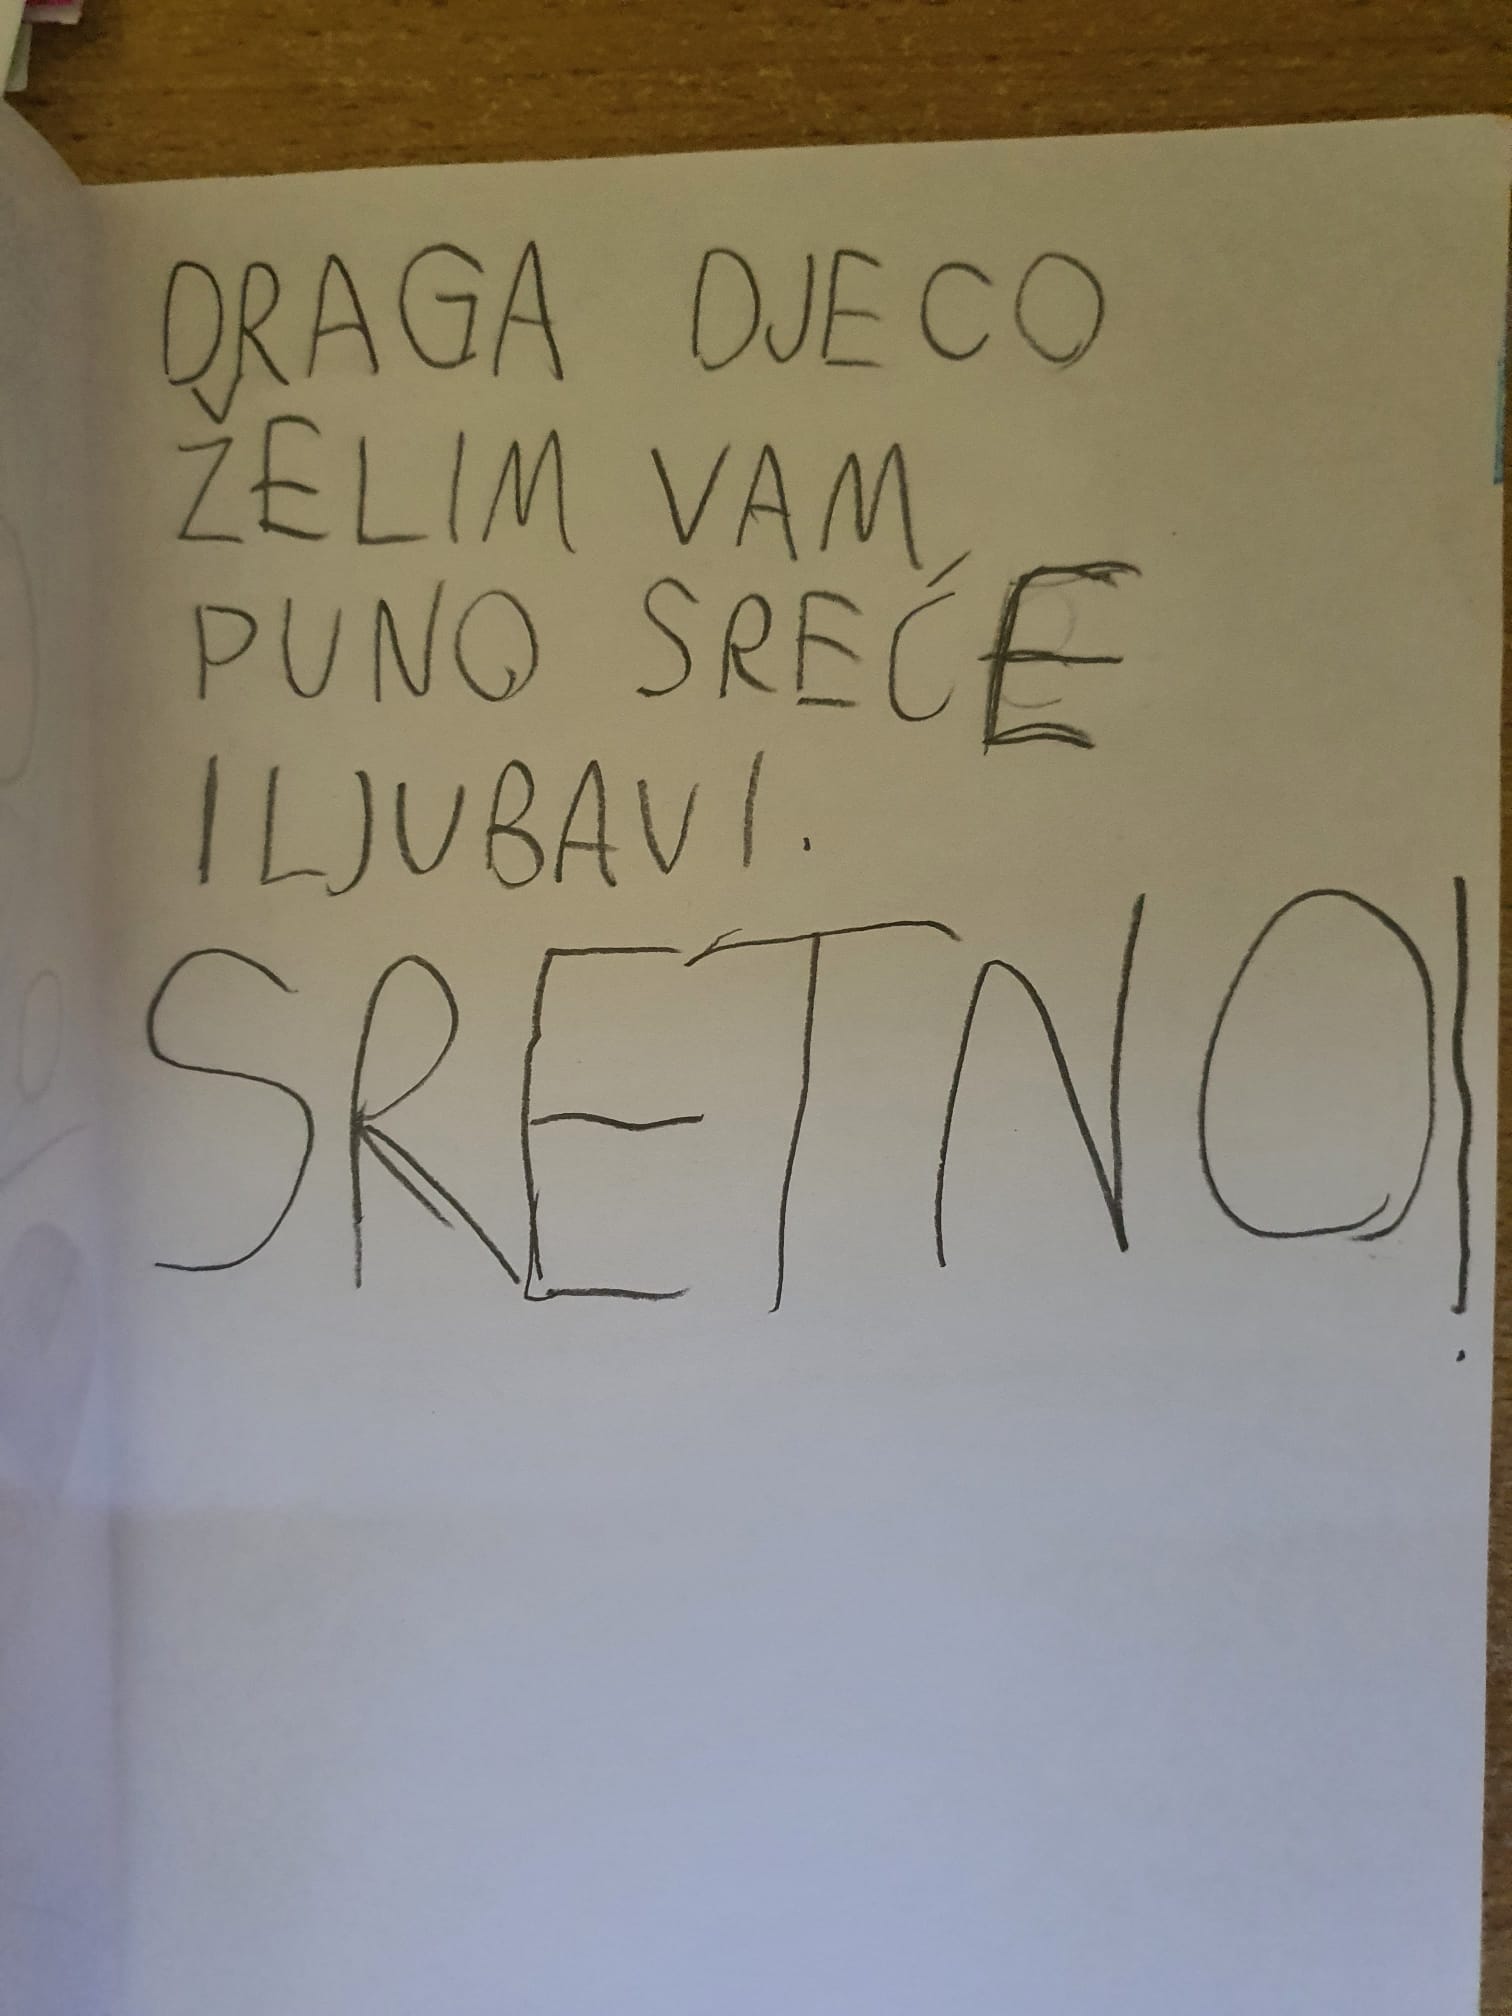 DRAGA DJECO
ŽELIM VAM
PUNO SREĆE
I LJUBAVI.
SRETNO!